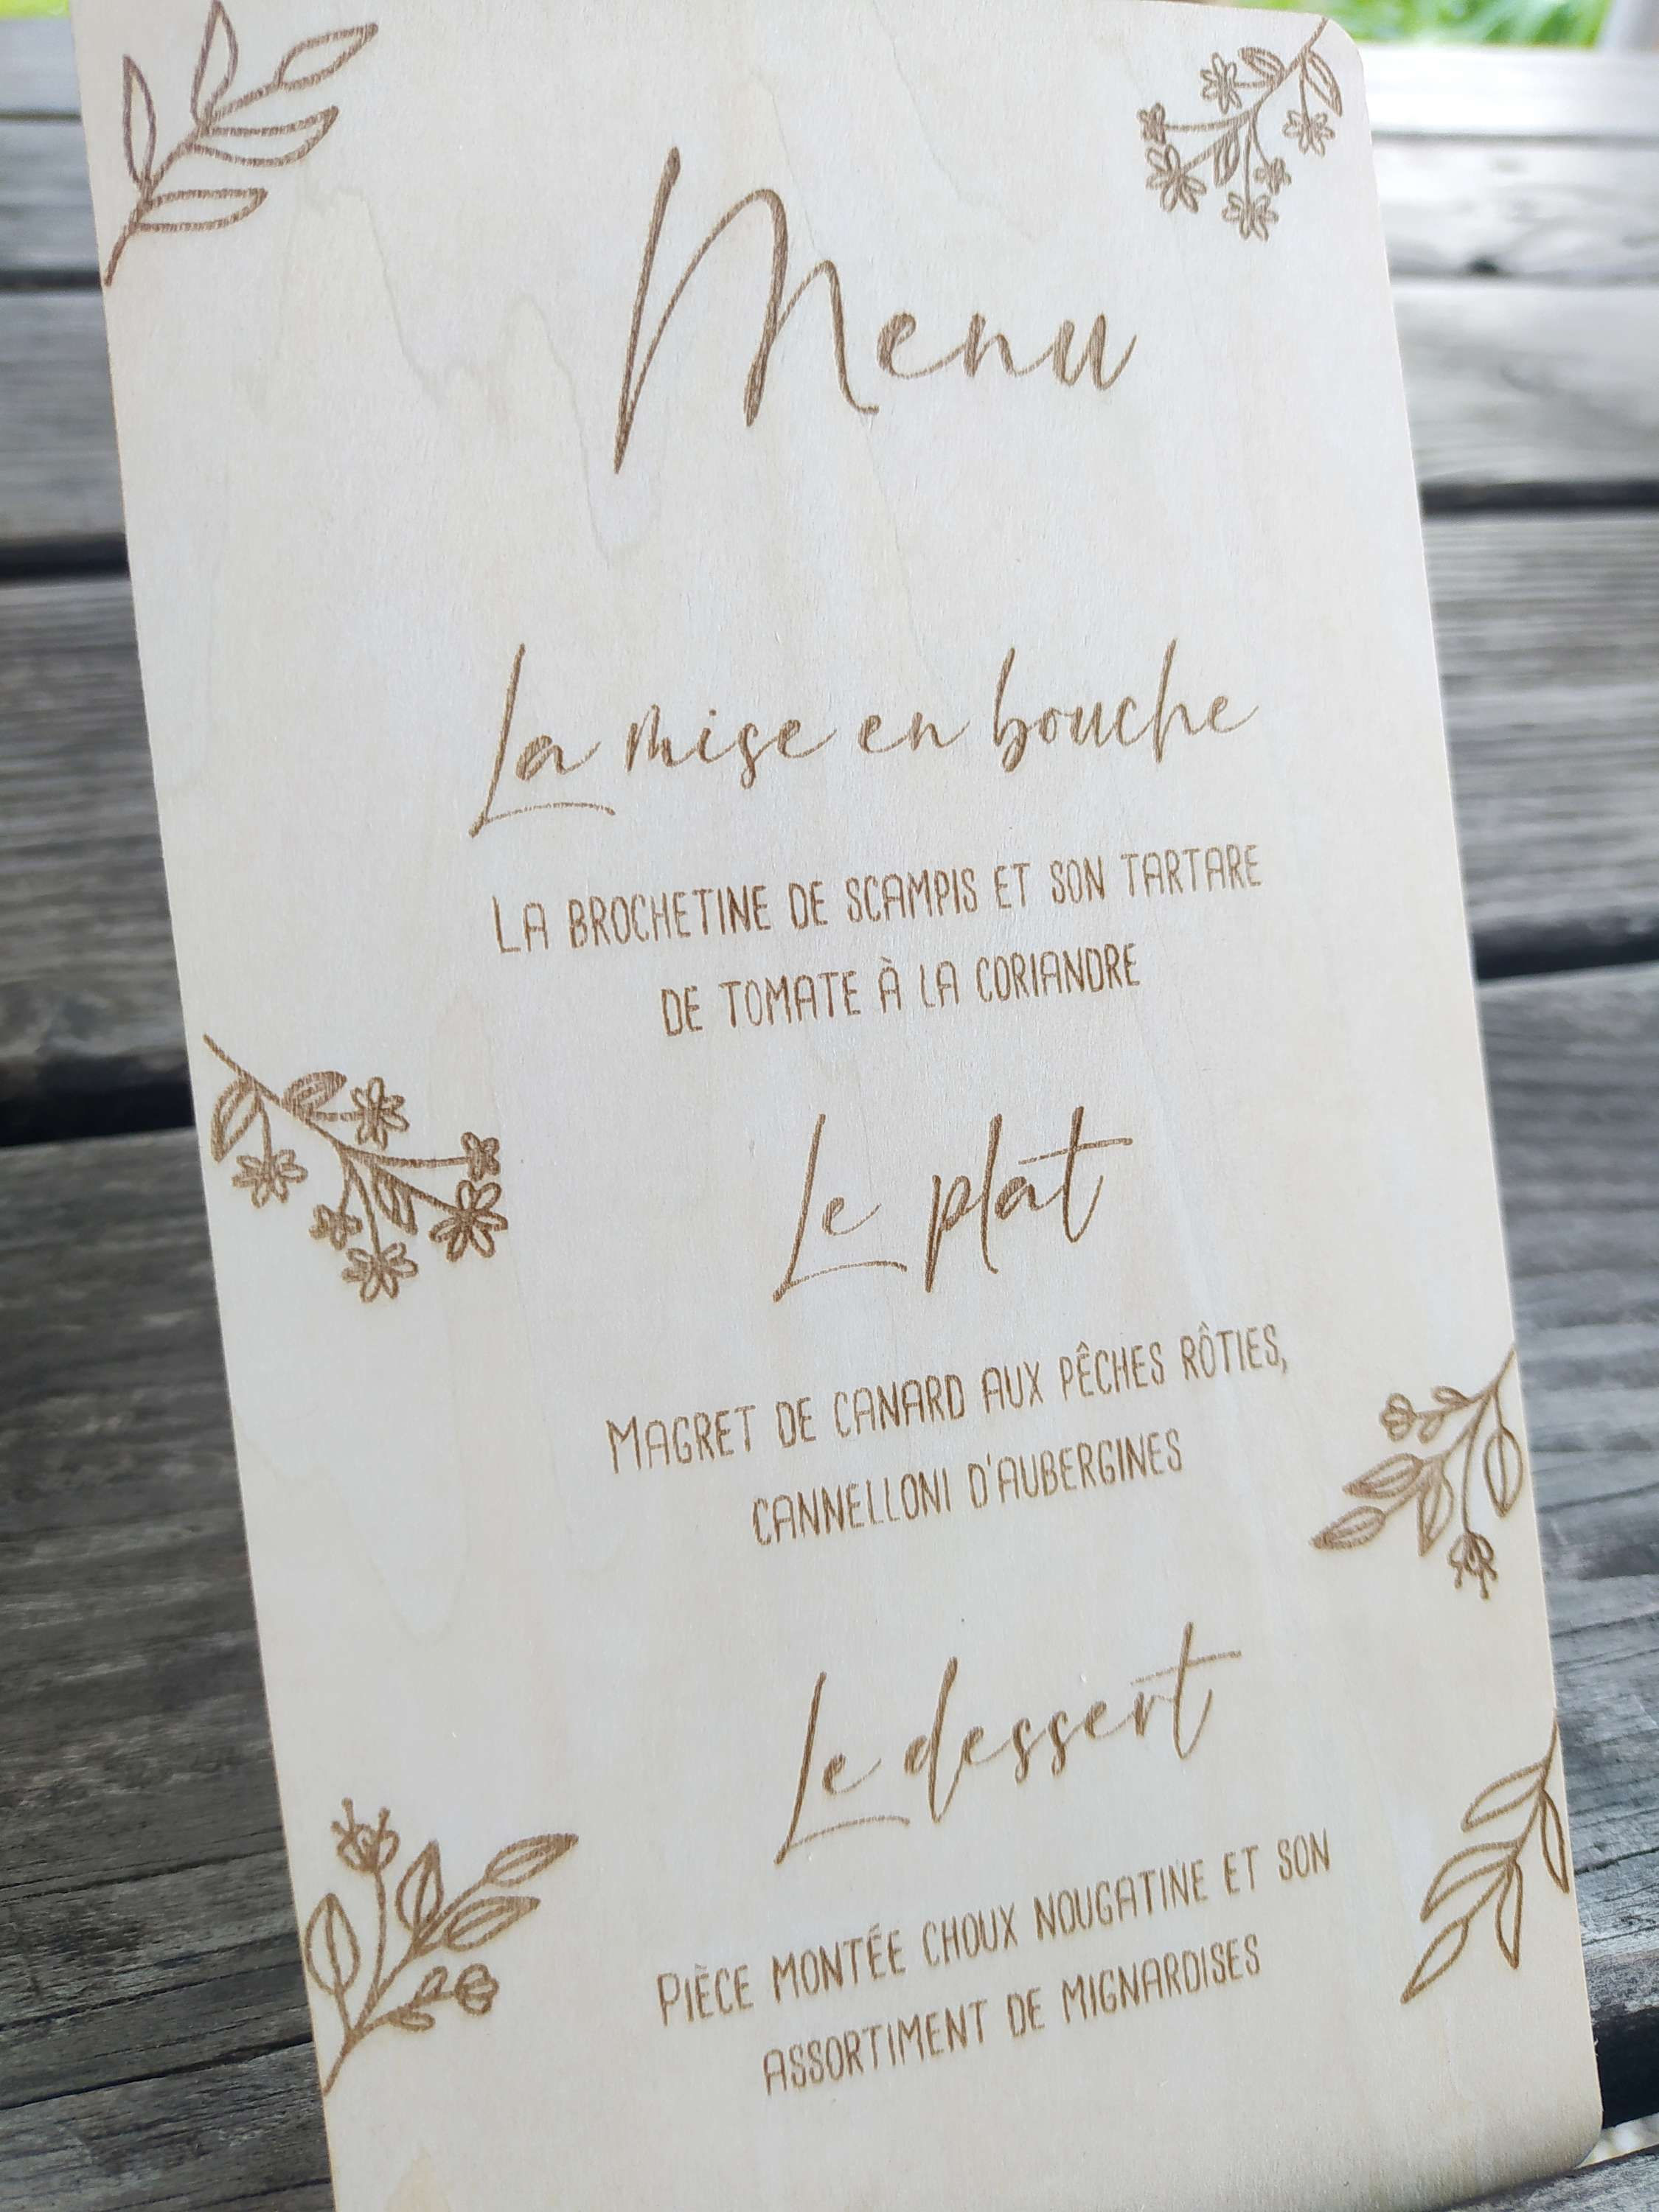 Menu
La mise en bouche
La brochetine de scampis et son tartare
de tomate à la coriandre
Le plat
Magret de canard aux pêches rôties,
cannelloni d'aubergines
Le dessert
Pièce montée choux nougatine et son
assortiment de mignardises